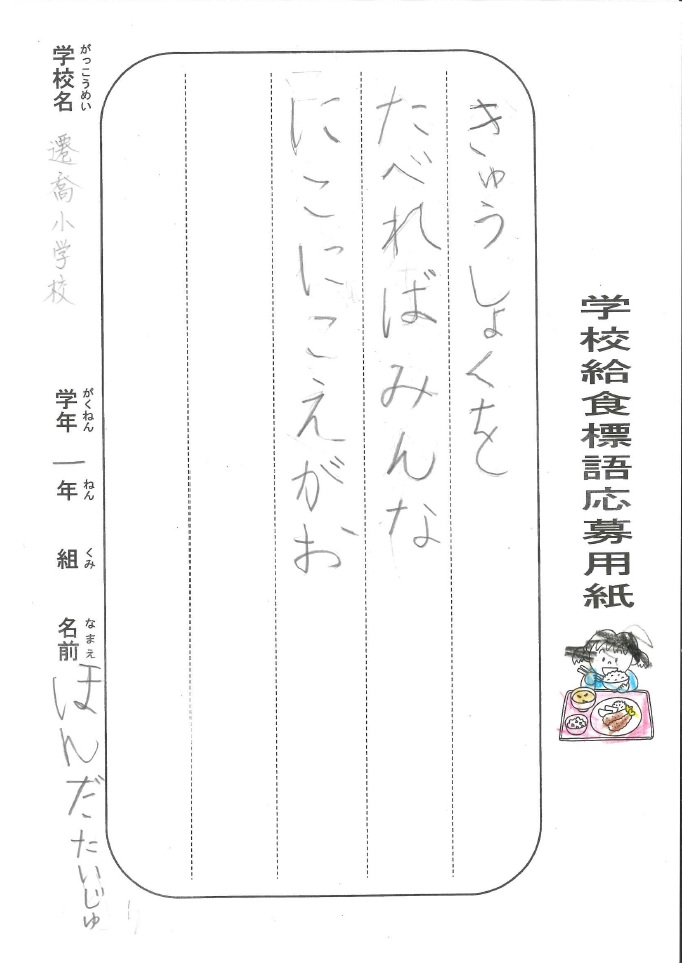 学校給食標語応募用紙
きゅうしょくを
たべればみんな
にこにこえがお
がっこうめい
学校名 遷喬小学校
がくねん ねん くみ
学年 一年 組
なまえ
名前 ほんだ たいじゅ